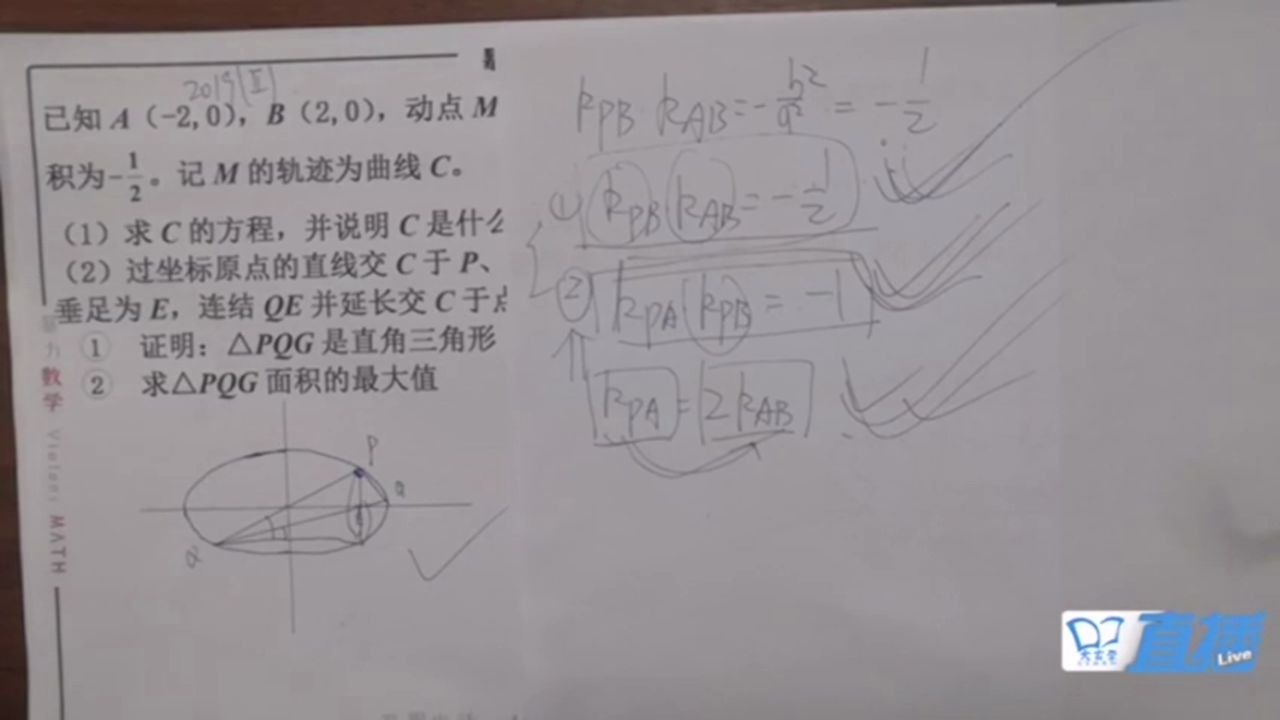 2019(II)
已知 A（-2,0），B（2,0），动点 M
积为-1/2。记 M 的轨迹为曲线 C。
（1）求 C 的方程，并说明 C 是什么
（2）过坐标原点的直线交 C 于 P、
垂足为 E，连结 QE 并延长交 C 于点
① 证明：△PQG 是直角三角形
② 求△PQG 面积的最大值
力 数学 MATH
P
a
k_PB·k_AB=-b²/a²=-1/2
① k_PB k_AB=-1/2
② k_PA·k_PB=-1
k_PA=2k_AB
直播
Live